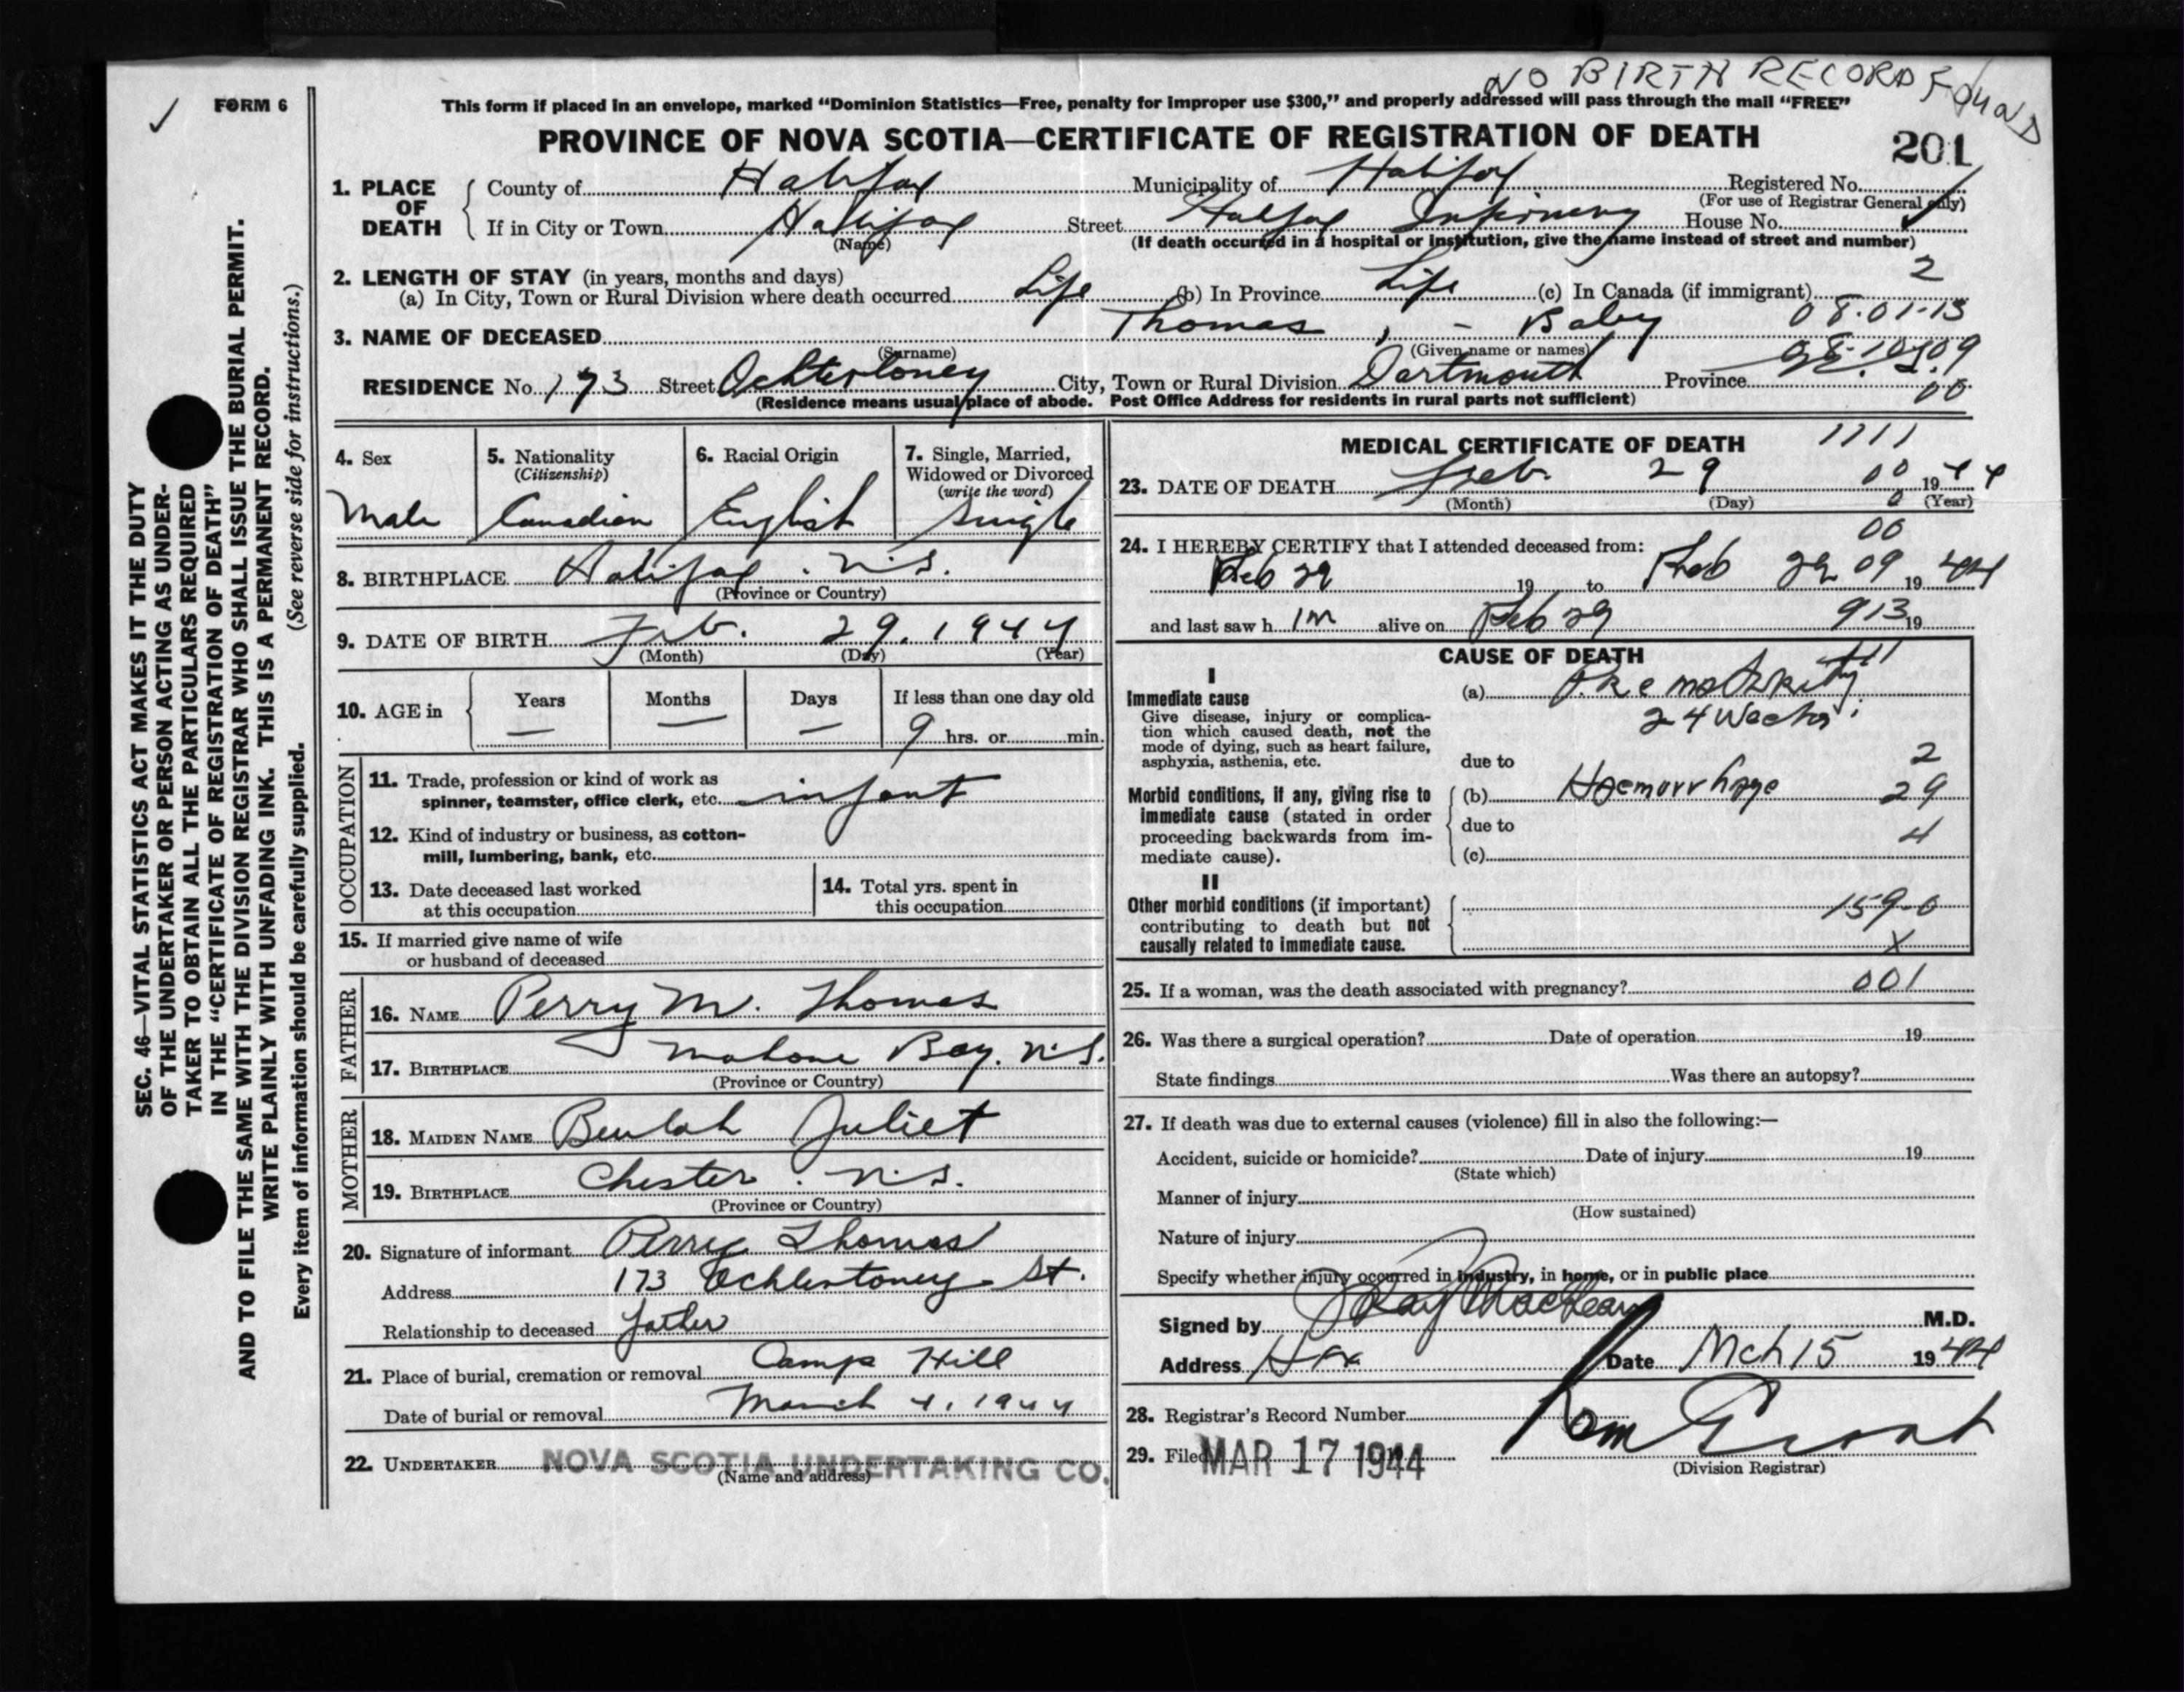 NO BIRTH RECORD FOUND
FORM 6
This form if placed in an envelope, marked "Dominion Statistics—Free, penalty for improper use $300," and properly addressed will pass through the mail "FREE"
PROVINCE OF NOVA SCOTIA—CERTIFICATE OF REGISTRATION OF DEATH
201
1. PLACE OF DEATH
County of Halifax Municipality of Halifax Registered No.
(For use of Registrar General only)
If in City or Town Halifax Street Halifax Infirmary House No.
(Name) (If death occurred in a hospital or institution, give the name instead of street and number)
2. LENGTH OF STAY (in years, months and days) 2
(a) In City, Town or Rural Division where death occurred Life (b) In Province Life (c) In Canada (if immigrant)
3. NAME OF DECEASED Thomas, - Baby 08-01-13
(Surname) (Given name or names)
RESIDENCE No. 173 Street Ochterloney City, Town or Rural Division Dartmouth Province 00
(Residence means usual place of abode. Post Office Address for residents in rural parts not sufficient)
4. Sex
Male
5. Nationality
(Citizenship)
Canadian
6. Racial Origin
English
7. Single, Married,
Widowed or Divorced
(write the word)
Single
8. BIRTHPLACE Halifax. N.S.
(Province or Country)
9. DATE OF BIRTH Feb. 29. 1944
(Month) (Day) (Year)
10. AGE in
Years Months Days If less than one day old
— — — 9 hrs. or min.
OCCUPATION
11. Trade, profession or kind of work as
spinner, teamster, office clerk, etc. infant
12. Kind of industry or business, as cotton-
mill, lumbering, bank, etc.
13. Date deceased last worked
at this occupation
14. Total yrs. spent in
this occupation
15. If married give name of wife
or husband of deceased
FATHER
16. NAME Perry M. Thomas
17. BIRTHPLACE Mahone Bay. N.S.
(Province or Country)
MOTHER
18. MAIDEN NAME Beulah Juliet
19. BIRTHPLACE Chester. N.S.
(Province or Country)
20. Signature of informant Perry Thomas
Address 173 Ochlertoney St.
Relationship to deceased father
21. Place of burial, cremation or removal Camp Hill
Date of burial or removal March 4, 1944
22. UNDERTAKER NOVA SCOTIA UNDERTAKING CO.
(Name and address)
MEDICAL CERTIFICATE OF DEATH 1111
23. DATE OF DEATH Feb. 29 00 1944
(Month) (Day) 0 (Year)
00
24. I HEREBY CERTIFY that I attended deceased from:
Feb 29 19 to Feb 29 09 1944
and last saw h im alive on Feb 29 913 19
CAUSE OF DEATH
I
Immediate cause
Give disease, injury or complica-
tion which caused death, not the
mode of dying, such as heart failure,
asphyxia, asthenia, etc.
(a) Prematurity
24 Weeks
due to 2
Morbid conditions, if any, giving rise to
immediate cause (stated in order
proceeding backwards from im-
mediate cause).
(b) Haemorrhage 29
due to 4
(c)
II
Other morbid conditions (if important)
contributing to death but not
causally related to immediate cause.
159-0
X
25. If a woman, was the death associated with pregnancy? 001
26. Was there a surgical operation? Date of operation 19
State findings Was there an autopsy?
27. If death was due to external causes (violence) fill in also the following:—
Accident, suicide or homicide? Date of injury 19
(State which)
Manner of injury
(How sustained)
Nature of injury
Specify whether injury occurred in industry, in home, or in public place
Signed by M.D.
Address Hfx Date Mch 15 1944
28. Registrar's Record Number
29. Filed MAR 17 1944
(Division Registrar)
SEC. 46—VITAL STATISTICS ACT MAKES IT THE DUTY
OF THE UNDERTAKER OR PERSON ACTING AS UNDER-
TAKER TO OBTAIN ALL THE PARTICULARS REQUIRED
IN THE "CERTIFICATE OF REGISTRATION OF DEATH"
AND TO FILE THE SAME WITH THE DIVISION REGISTRAR WHO SHALL ISSUE THE BURIAL PERMIT.
WRITE PLAINLY WITH UNFADING INK. THIS IS A PERMANENT RECORD.
Every item of information should be carefully supplied. (See reverse side for instructions.)